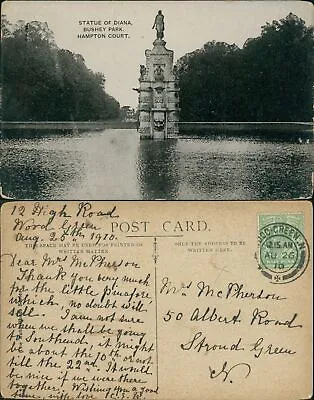 STATUE OF DIANA,
BUSHEY PARK.
HAMPTON COURT.
POST CARD.
THIS SPACE MAY BE USED FOR PRINTED OR
WRITTEN MATTER.
THE ADDRESS ONLY TO BE
WRITTEN HERE.
WOOD GREEN. N
12.15 AM
AU 26
10
12 High Road
Wood Green
Aug. 25th 1910.
Dear Mrs McPherson
Thank you very much
for the little pinafore
which, no doubt will
sell. I am not sure
when we shall be going
to Southend, it might
be about the 10th or not
till the 22nd. It would
be nice if we were there
together. Wishing you a good
time, with love
Mrs McPherson
50 Albert Road
Stroud Green
N.